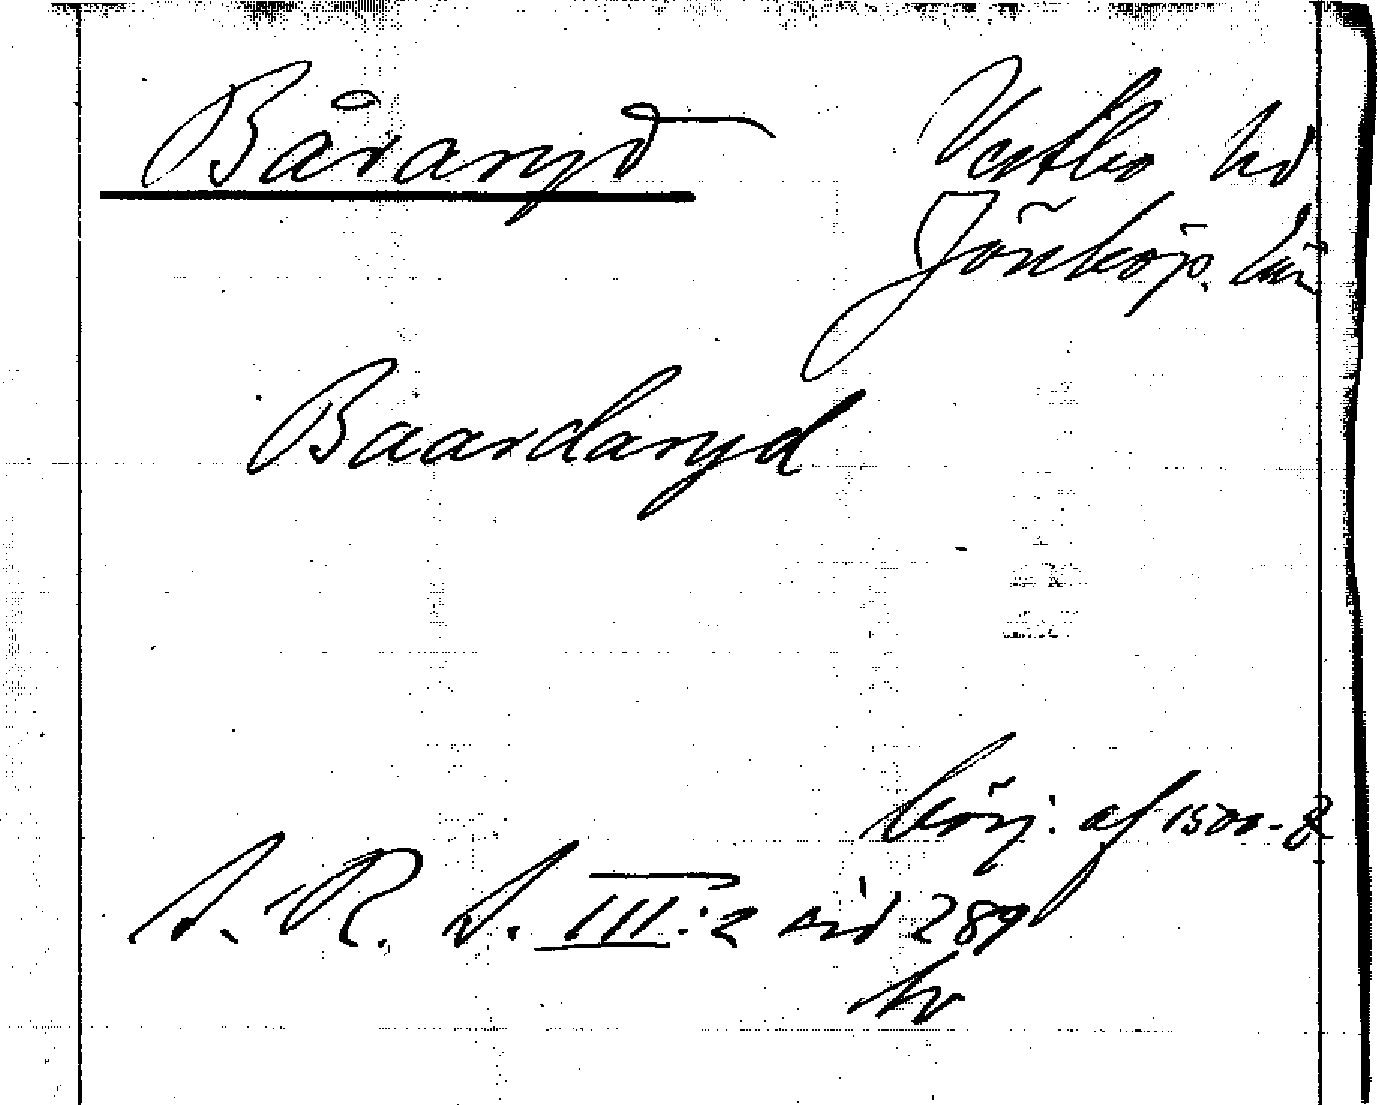 Båraryd
Vestbo hd
Jönköp. län
Baardaryd
börj. af 1500-t
S. R. S. III:2 sid 289